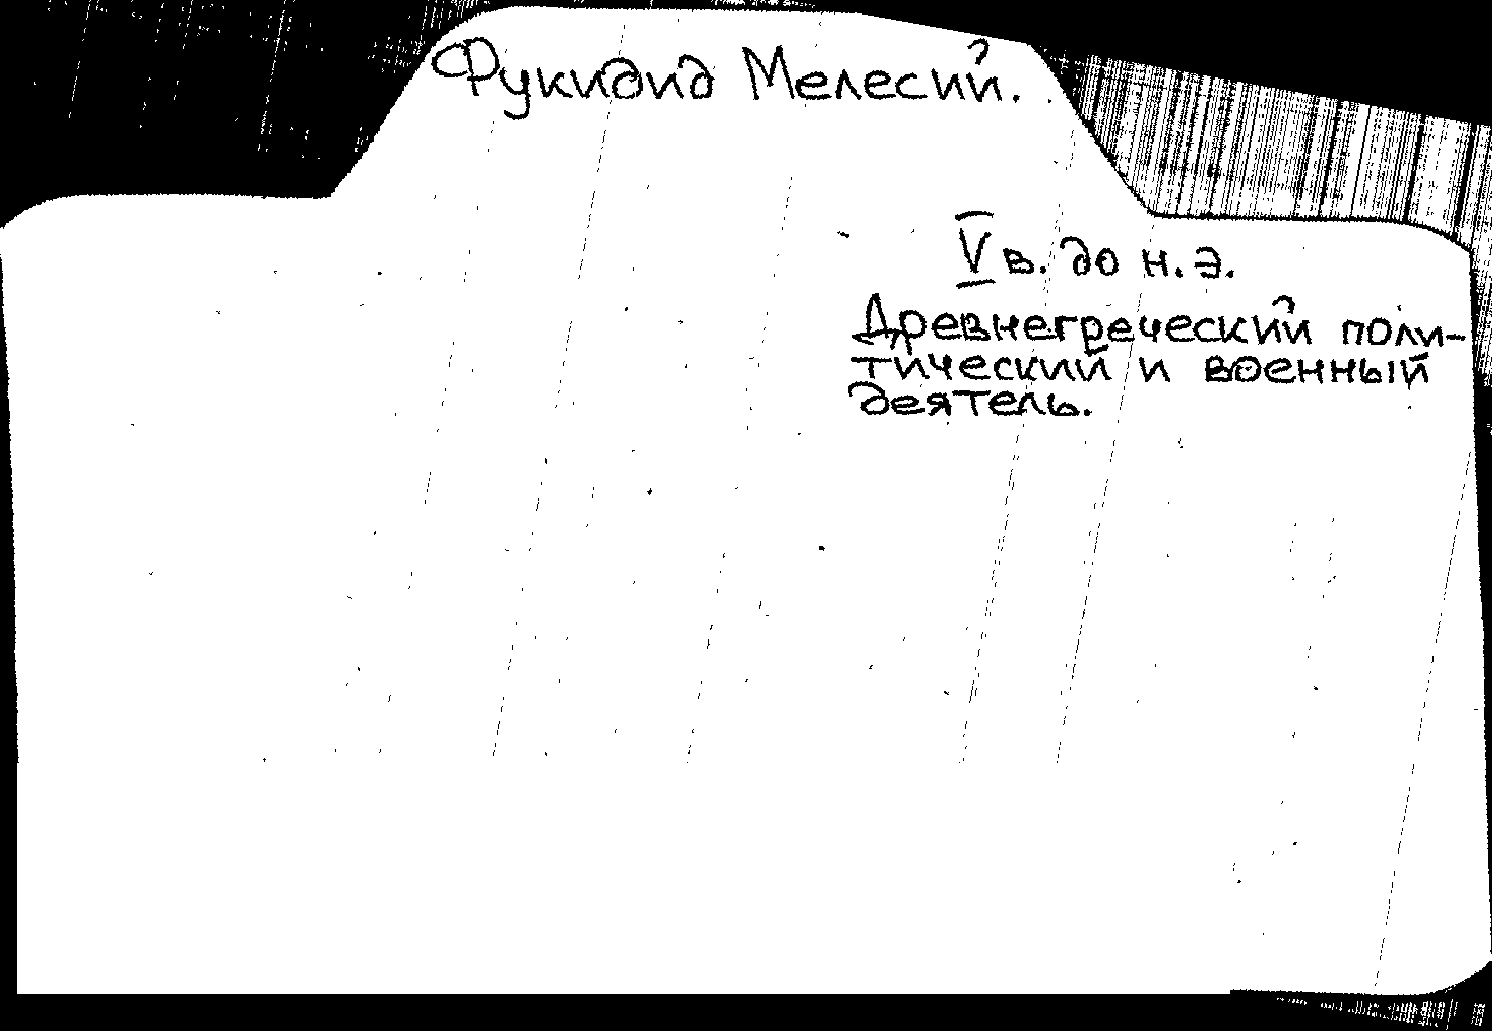 Фукидид Мелесий.
V в. до н.э.
Древнегреческий поли-
тический и военный
деятель.